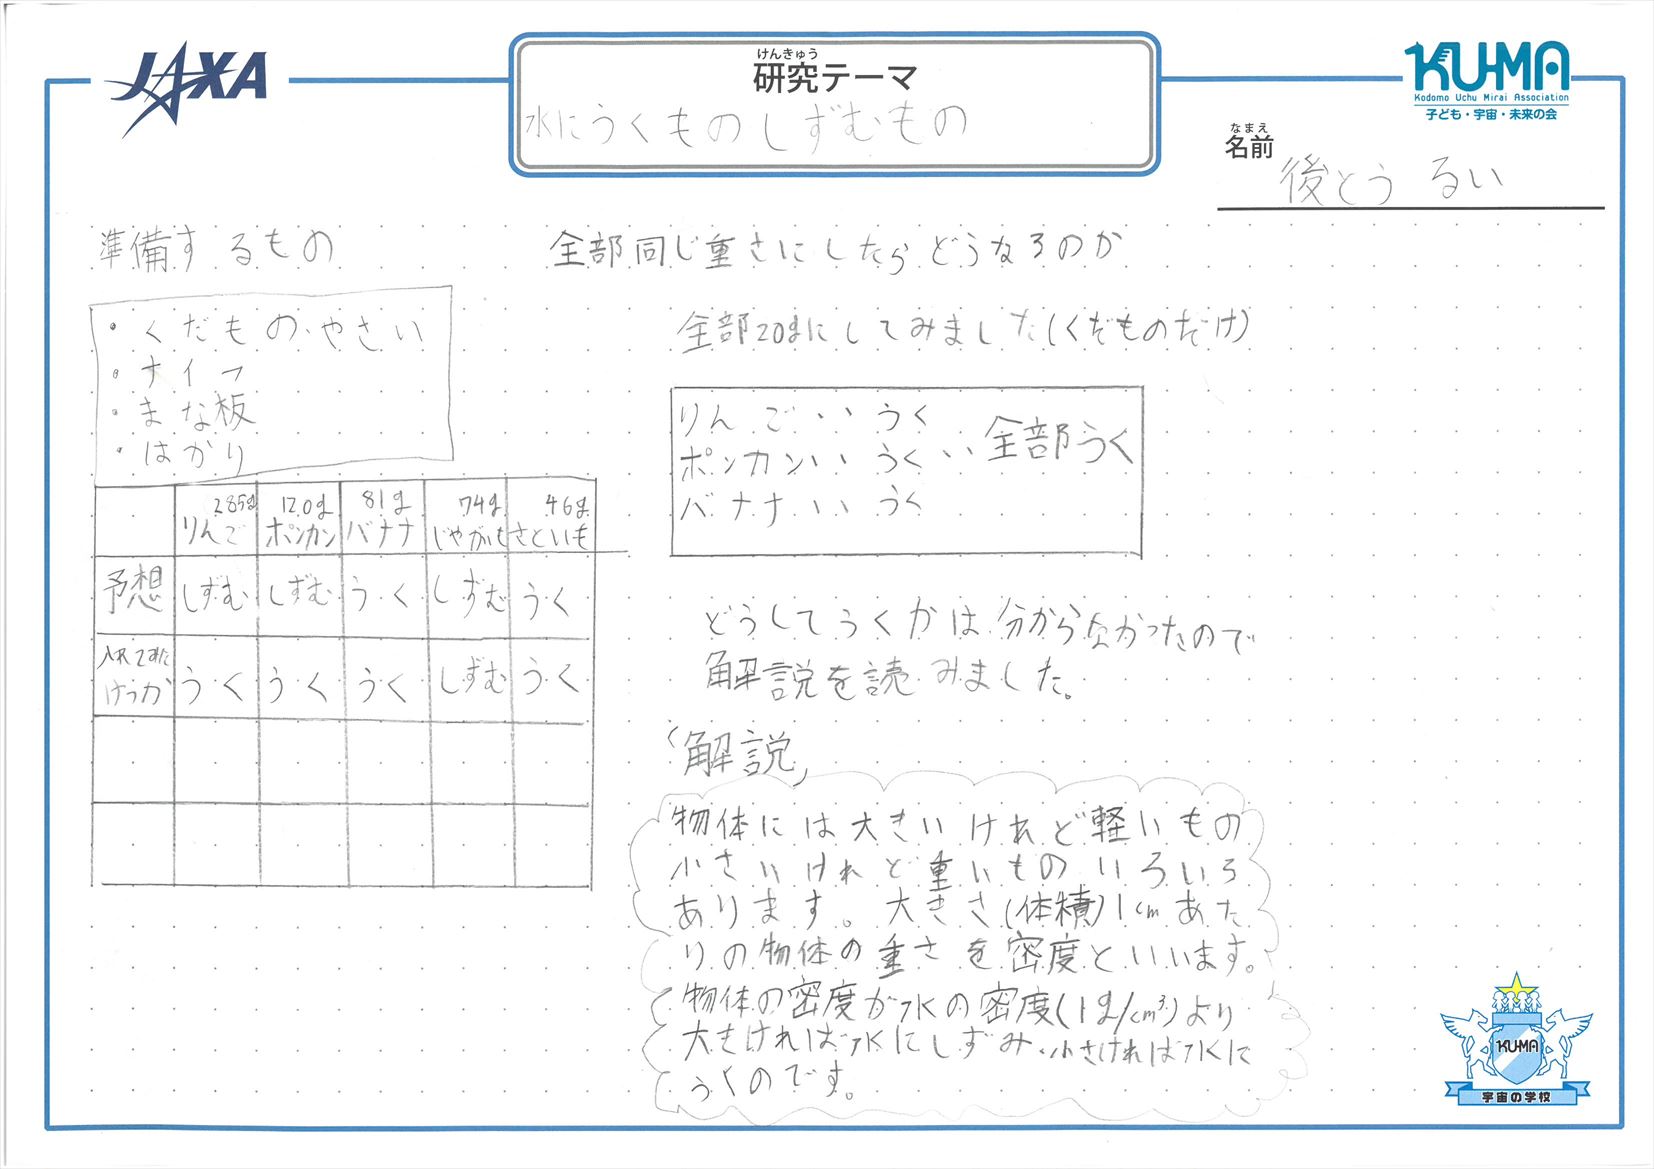 JAXA
けんきゅう
研究テーマ
水にうくものしずむもの
KU-MA
Kodomo Uchu Mirai Association
子ども・宇宙・未来の会
なまえ
名前
後とう るい
準備するもの
・くだもの・やさい
・ナイフ
・まな板
・はかり
285g りんご 120g ポンカン 81g バナナ 74g じゃがいも 46g さといも
予想 しずむ しずむ うく しずむ うく
入れてみた けっか うく うく うく しずむ うく
全部同じ重さにしたらどうなるのか
全部20gにしてみました(くだものだけ)
りんご・・うく
ポンカン・・うく・・全部うく
バナナ・・うく
どうしてうくかは分からなかったので
解説を読みました。
「解説」
物体には大きいけれど軽いもの
小さいけれど重いものいろいろ
あります。大きさ(体積)1cmあた
りの物体の重さを密度といいます。
物体の密度が水の密度(1g/cm³)より
大きければ水にしずみ、小さければ水に
うくのです。
KU-MA
宇宙の学校